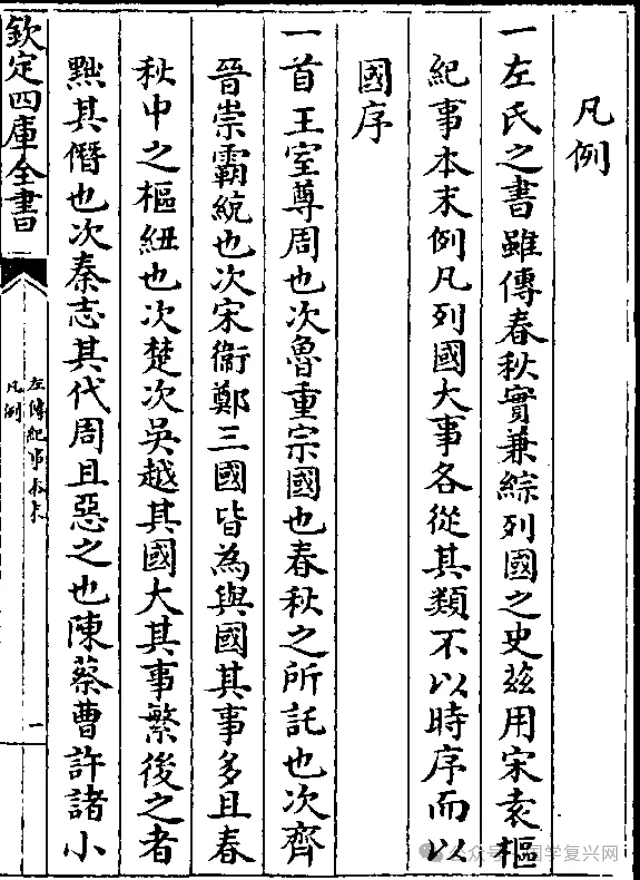 凡例
一左氏之書雖傳春秋實兼綜列國之史茲用宋袁樞
紀事本末例凡列國大事各從其類不以時序而以
國序
一首王室尊周也次魯重宗國也春秋之所託也次齊
晉崇霸統也次宋衞鄭三國皆為與國其事多且春
秋中之樞紐也次楚次吳越其國大其事繁後之者
黜其僭也次秦志其代周且惡之也陳蔡曹許諸小
欽定四庫全書
左傳紀事本末
凡例
一
公众号 国学复兴网